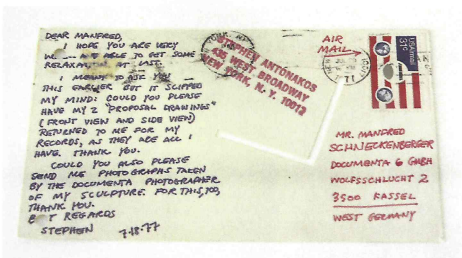 DEAR MANFRED,
I HOPE YOU ARE VERY
ABLE TO GET SOME
RELAXATION AT LAST.
I MEANT TO ASK YOU
THIS EARLIER BUT IT SLIPPED
MY MIND: COULD YOU PLEASE
HAVE MY 2 "PROPOSAL DRAWINGS"
(FRONT VIEW AND SIDE VIEW)
RETURNED TO ME FOR MY
RECORDS, AS THEY ARE ALL I
HAVE. THANK YOU.
COULD YOU ALSO PLEASE
SEND ME PHOTOGRAPHS TAKEN
BY THE DOCUMENTA PHOTOGRAPHER
OF MY SCULPTURE. FOR THIS, TOO,
THANK YOU.
REGARDS
STEPHEN 7.18.77
STEPHEN ANTONAKOS
435 WEST BROADWAY
NEW YORK, N. Y. 10012
AIR
MAIL
USAirmail
31c
MR. MANFRED
SCHNECKENBERGER
DOCUMENTA 6 GMBH
WOLFSSCHLUCHT 2
3500 KASSEL
WEST GERMANY